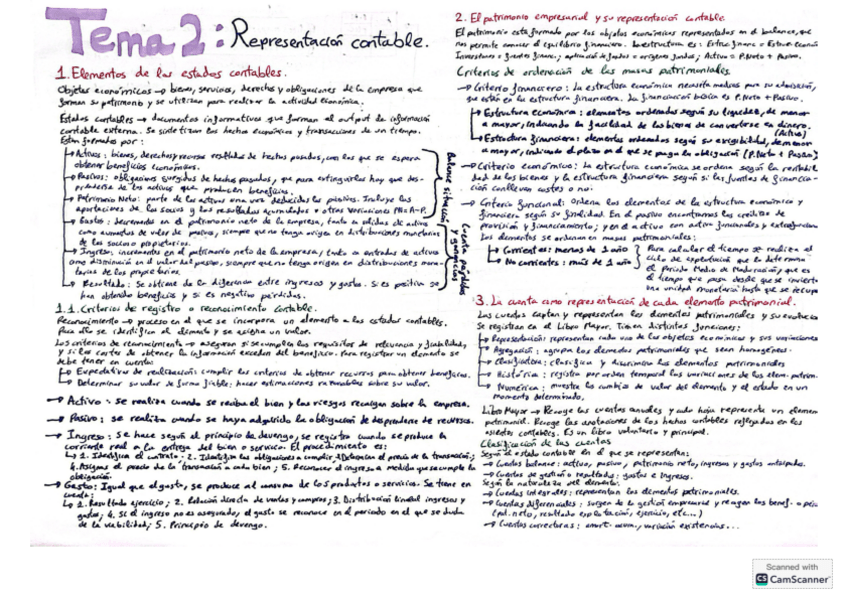 Tema 2: Representación contable.
1. Elementos de los estados contables.
Objetos económicos → bienes, servicios, derechos y obligaciones de la empresa que
forman su patrimonio y se utilizan para realizar la actividad económica.
Estados contables → documentos informativos que forman el output de información
contable externa. Se sintetizan los hechos económicos y transacciones de un tiempo.
Están formados por:
Activos: bienes, derechos y recursos resultados de hechos pasados, con los que se espera
obtener beneficios económicos.
Pasivos: obligaciones surgidas de hechos pasados, que para extinguirlas hay que des-
prenderse de los activos que producen beneficios.
Patrimonio Neto: parte de los activos una vez deducidos los pasivos. Incluye las
aportaciones de los socios y los resultados acumulados u otras variaciones PN=A-P.
Gastos: decremento en el patrimonio neto de la empresa, tanto en salidas de activo
como aumentos de valor de pasivos, siempre que no tenga origen en distribuciones monetarias
de los socios o propietarios.
Ingreso: incrementos en el patrimonio neto de la empresa, tanto en entradas de activos
como disminución en el valor del pasivo, siempre que no tenga origen en distribuciones mone-
tarias de los propietarios.
Resultado: Se obtiene de la diferencia entre ingresos y gastos. Si es positivo se
han obtenido beneficios y si es negativo pérdidas.
Balance situación
Cuenta pérdidas
y ganancias
1.1. Criterios de registro o reconocimiento contable.
Reconocimiento → proceso en el que se incorpora un elemento a los estados contables.
Para ello se identifica el elemento y se asigna un valor.
Los criterios de reconocimiento → aseguran si se cumplen los requisitos de relevancia y fiabilidad,
y si los costes de obtener la información exceden del beneficio. Para registrar un elemento se
debe tener en cuenta:
Expectativa de realización: cumplir los criterios de obtener recursos para obtener beneficios.
Determinar su valor de forma fiable: hacer estimaciones razonables sobre su valor.
→ Activo: se realiza cuando se reciba el bien y los riesgos recaigan sobre la empresa.
→ Pasivo: se realiza cuando se haya adquirido la obligación de desprenderse de recursos.
→ Ingreso: Se hace según el principio de devengo, se registra cuando se produce la
corriente real a la entrega del bien o servicio. El procedimiento es:
1. Identificar el contrato; 2. Identificar las obligaciones a cumplir; 3. Determinación el precio de la transacción;
4. Asignar el precio de la transacción a cada bien; 5. Reconocer el ingreso a medida que se cumple la
obligación.
→ Gasto: Igual que el gasto, se produce al consumo de los productos o servicios. Se tiene en
cuenta:
1. Resultado ejercicio; 2. Relación directa de ventas y compras; 3. Distribución lineal ingresos y
gastos; 4. Si el ingreso no es asegurado, el gasto se reconoce en el periodo en el que se duda
de la viabilidad; 5. Principio de devengo.
2. El patrimonio empresarial y su representación contable.
El patrimonio está formado por los objetos económicos representados en el balance, que
nos permite conocer el equilibrio financiero. La estructura es: Estruc. financ = Estruc. econó
Inversiones = fuentes financ; aplicación de fondos = orígenes fondos; Activo = P.Neto + Pasivo.
Criterios de ordenación de las masas patrimoniales
→ Criterio financiero: la estructura económica necesita medios para su
que están en la estructura financiera. La financiación básica es P.Neto + Pasivo.
Estructura económica: elementos ordenados según su liquidez, de menor
a mayor, indicando la facilidad de los bienes de convertirse en dinero.
(Activo)
Estructura financiera: elementos ordenados según su exigibilidad, de menor
a mayor, indicando el plazo en el que se paga la obligación (P.Neto + Pasivo)
→ Criterio económico: la estructura económica se ordena según la rentabili
dad de los bienes y la estructura financiera según si las fuentes de financia-
ción conllevan costes o no.
→ Criterio funcional: ordena los elementos de la estructura económica y
financiera según su finalidad. En el pasivo encontramos los créditos de
provisión y financiamiento; y en el activo son activo funcionales y extrafuncion
Los elementos se ordenan en masas patrimoniales:
Corrientes: menos de 1 año
No corrientes: más de 1 año
Para calcular el tiempo se realiza el
ciclo de explotación que lo determina
el Periodo Medio de Maduración, que es
el tiempo que pasa desde que se invierte
una unidad monetaria hasta que se recupe
3. La cuenta como representación de cada elemento patrimonial.
Las cuentas captan y representan los elementos patrimoniales y su evolució
Se registran en el Libro Mayor. Tienen distintas funciones:
Representación: representan cada uno de los objetos económicos y sus variaciones
Agregación: agrupan los elementos patrimoniales que sean homogéneos.
Clasificadora: clasifica y discrimina los elementos patrimoniales
Histórica: registra por orden temporal las variaciones de los elem. patrim.
Numérica: muestra los cambios de valor del elemento y el estado en un
momento determinado.
Libro Mayor → Recoge las cuentas anuales y cada hoja representa un elemen
patrimonial. Recoge las anotaciones de los hechos contables reflejadas en los
asientos contables. Es un libro voluntario y principal.
Clasificación de las cuentas
Según el estado contable en el que se representan:
→ Cuentas balance: activo, pasivo, patrimonio neto, ingresos y gastos
→ Cuentas de gestión o resultado: gastos e ingresos.
Según la naturaleza del elemento:
→ Cuentas integrales: representan los elementos patrimoniales.
→ Cuentas diferenciales: surgen de la gestión empresarial y recogen los benef. o
(pat. neto, resultado explotación, ejercicio, etc...)
→ Cuentas correctoras: amort. acum., variación existencias...
Scanned with
CS CamScanner